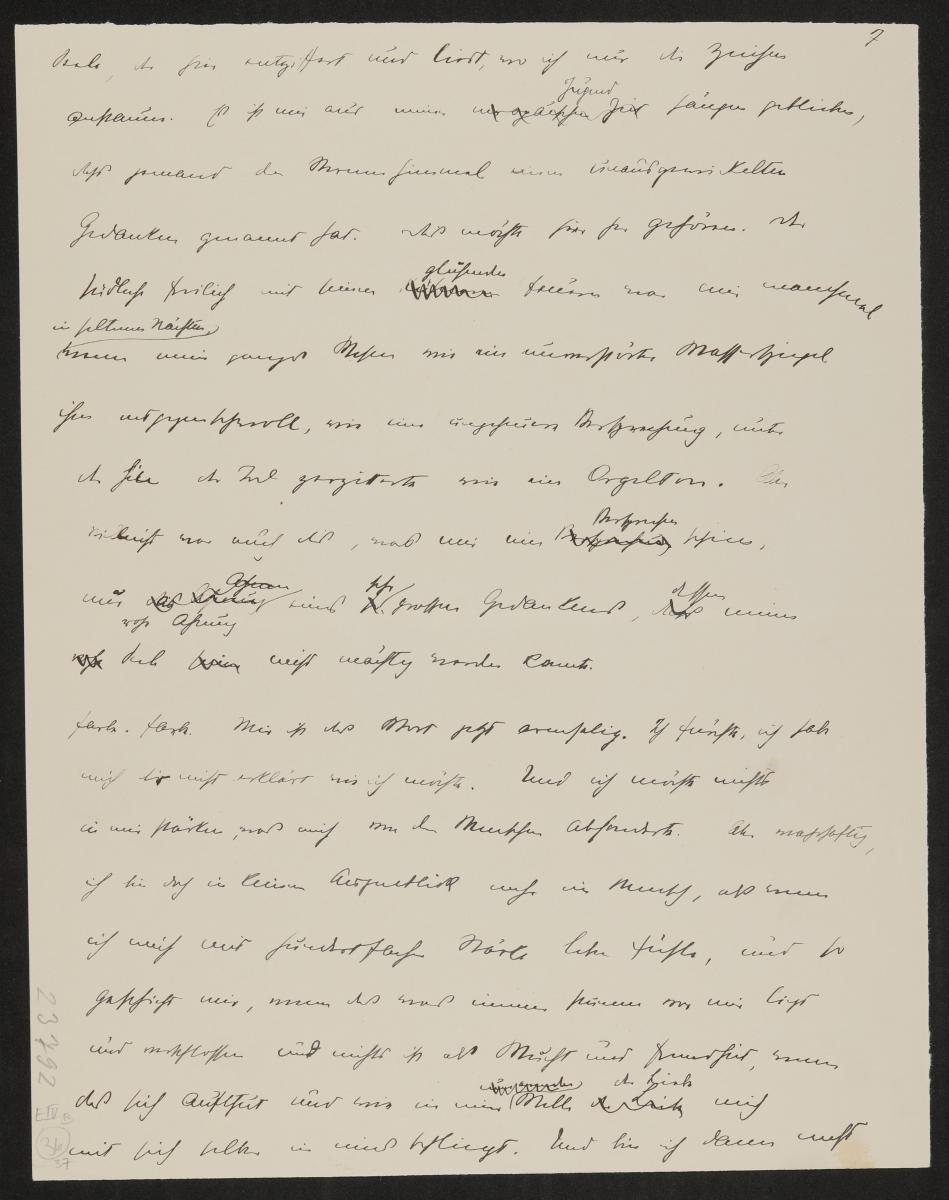 7
Seele, die hier entziffert und liest, wo ich nur die Zeichen
anstaune. Es ist mir aus meiner Jugend Zeit hängen geblieben,
dass jemand den Sternenhimmel einen unausgewickelten
Gedanken genannt hat. Das möchte hier her gehören. Der
südliche freilich mit seinen glühenden Feuern war mir manchmal
in seltenen Nächten
wenn mein ganzes Wesen wie ein unverstörter Wasserspiegel
ihm entgegenschwoll, wie eine ungeheuere Versprechung, unter
der hin der Tod zerzitterte wie ein Orgelton. Aber
vielleicht war auch das, was mir ein Versprechen schien,
nur wohl Ahnung eines sehr grossen Gedankens, dessen meine
Seele nicht mächtig werden konnte.
Farbe. Farbe. Mir ist das Wort jetzt armselig. Ich fürchte, ich habe
mich Dir nicht erklärt wie ich möchte. Und ich möchte nichts
in mir stärken, was mich von den Menschen absonderte. Aber wahrhaftig,
ich bin doch in keinem Augenblick mehr ein Mensch, als wenn
ich mich mit hundertfacher Stärke leben fühle, und so
geschieht mir, wenn das was immer stumm vor mir liegt
und verschlossen und nichts ist als Wucht und Fremdheit, wenn
das sich aufthut und wie in einer Welle der Liebe mich
mit sich selber in eines schlingt. Und bin ich dann nicht
23792
E IV B
37